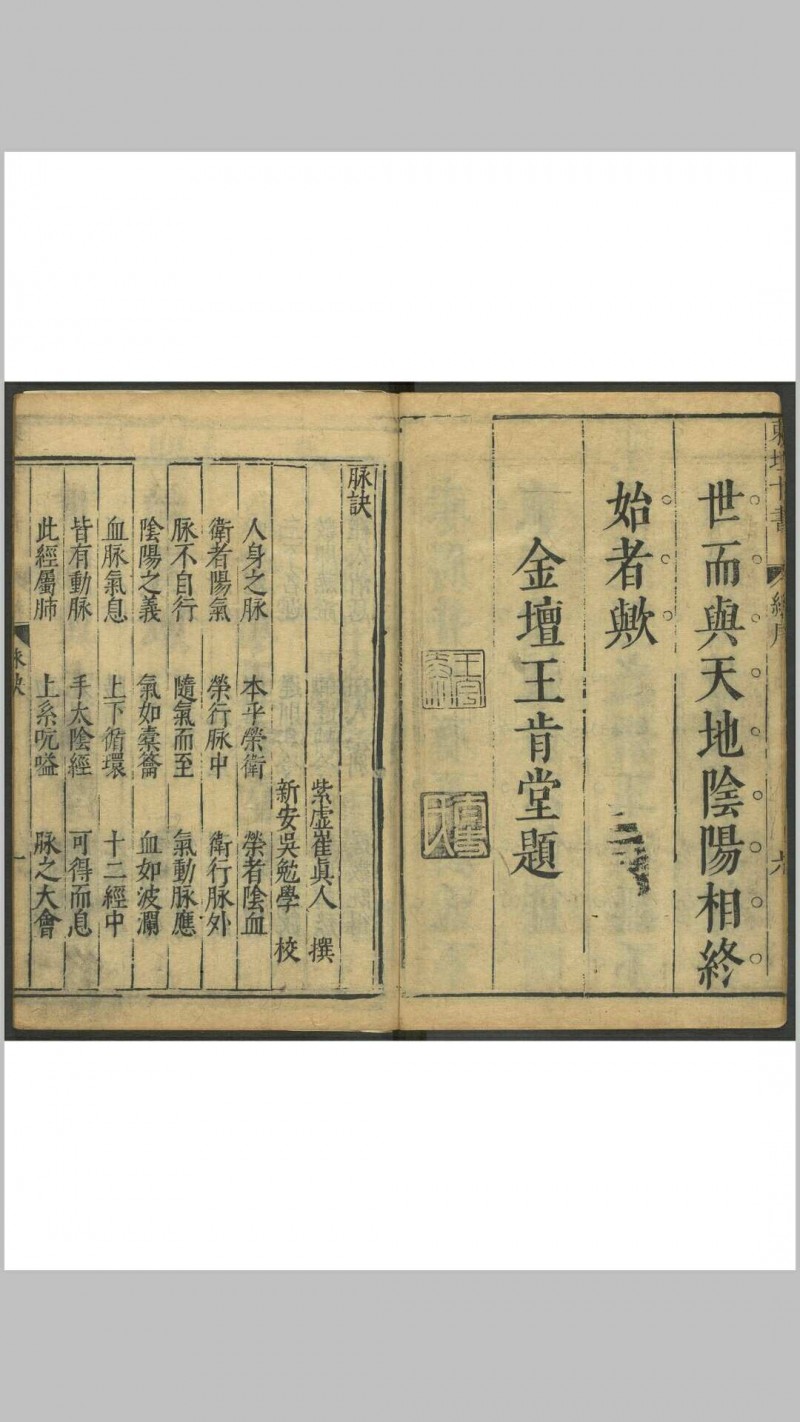 世而與天地陰陽相終
始者歟
金壇王肯堂題
脉訣
紫虛崔眞人 撰
新安吳勉學 校
人身之脉 本乎榮衛 榮者陰血
衛者陽氣 榮行脉中 衛行脉外
脉不自行 隨氣而至 氣動脉應
陰陽之義 氣如橐籥 血如波瀾
血脉氣息 上下循環 十二經中
皆有動脉 手太陰經 可得而息
此經屬肺 上系吭嗌 脉之大會
脉訣 一